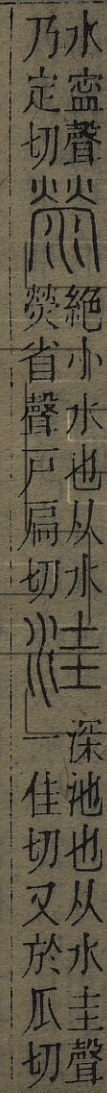 水寍聲
乃定切
滎
絕小水也从水
熒省聲戶扃切
洼
深池也从水圭聲
一佳切又於瓜切